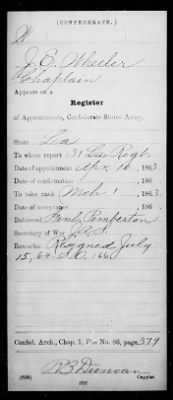 (CONFEDERATE.)
W
J. E. Wheeler
Chaplain
Appears on a
Register
of Appointments, Confederate States Army.
State La
To whom report 31 La Regt.
Date of appointment Apr. 18, 1863.
Date of confirmation , 186 .
To take rank Mch 1 , 1863.
Date of acceptance , 186 .
Delivered Genl. Pemberton
Secretary of War J. A. S.
Remarks: Resigned July
15, 64
Confed. Arch., Chap. 1, File No. 86, page 379
(635)
Copyist.